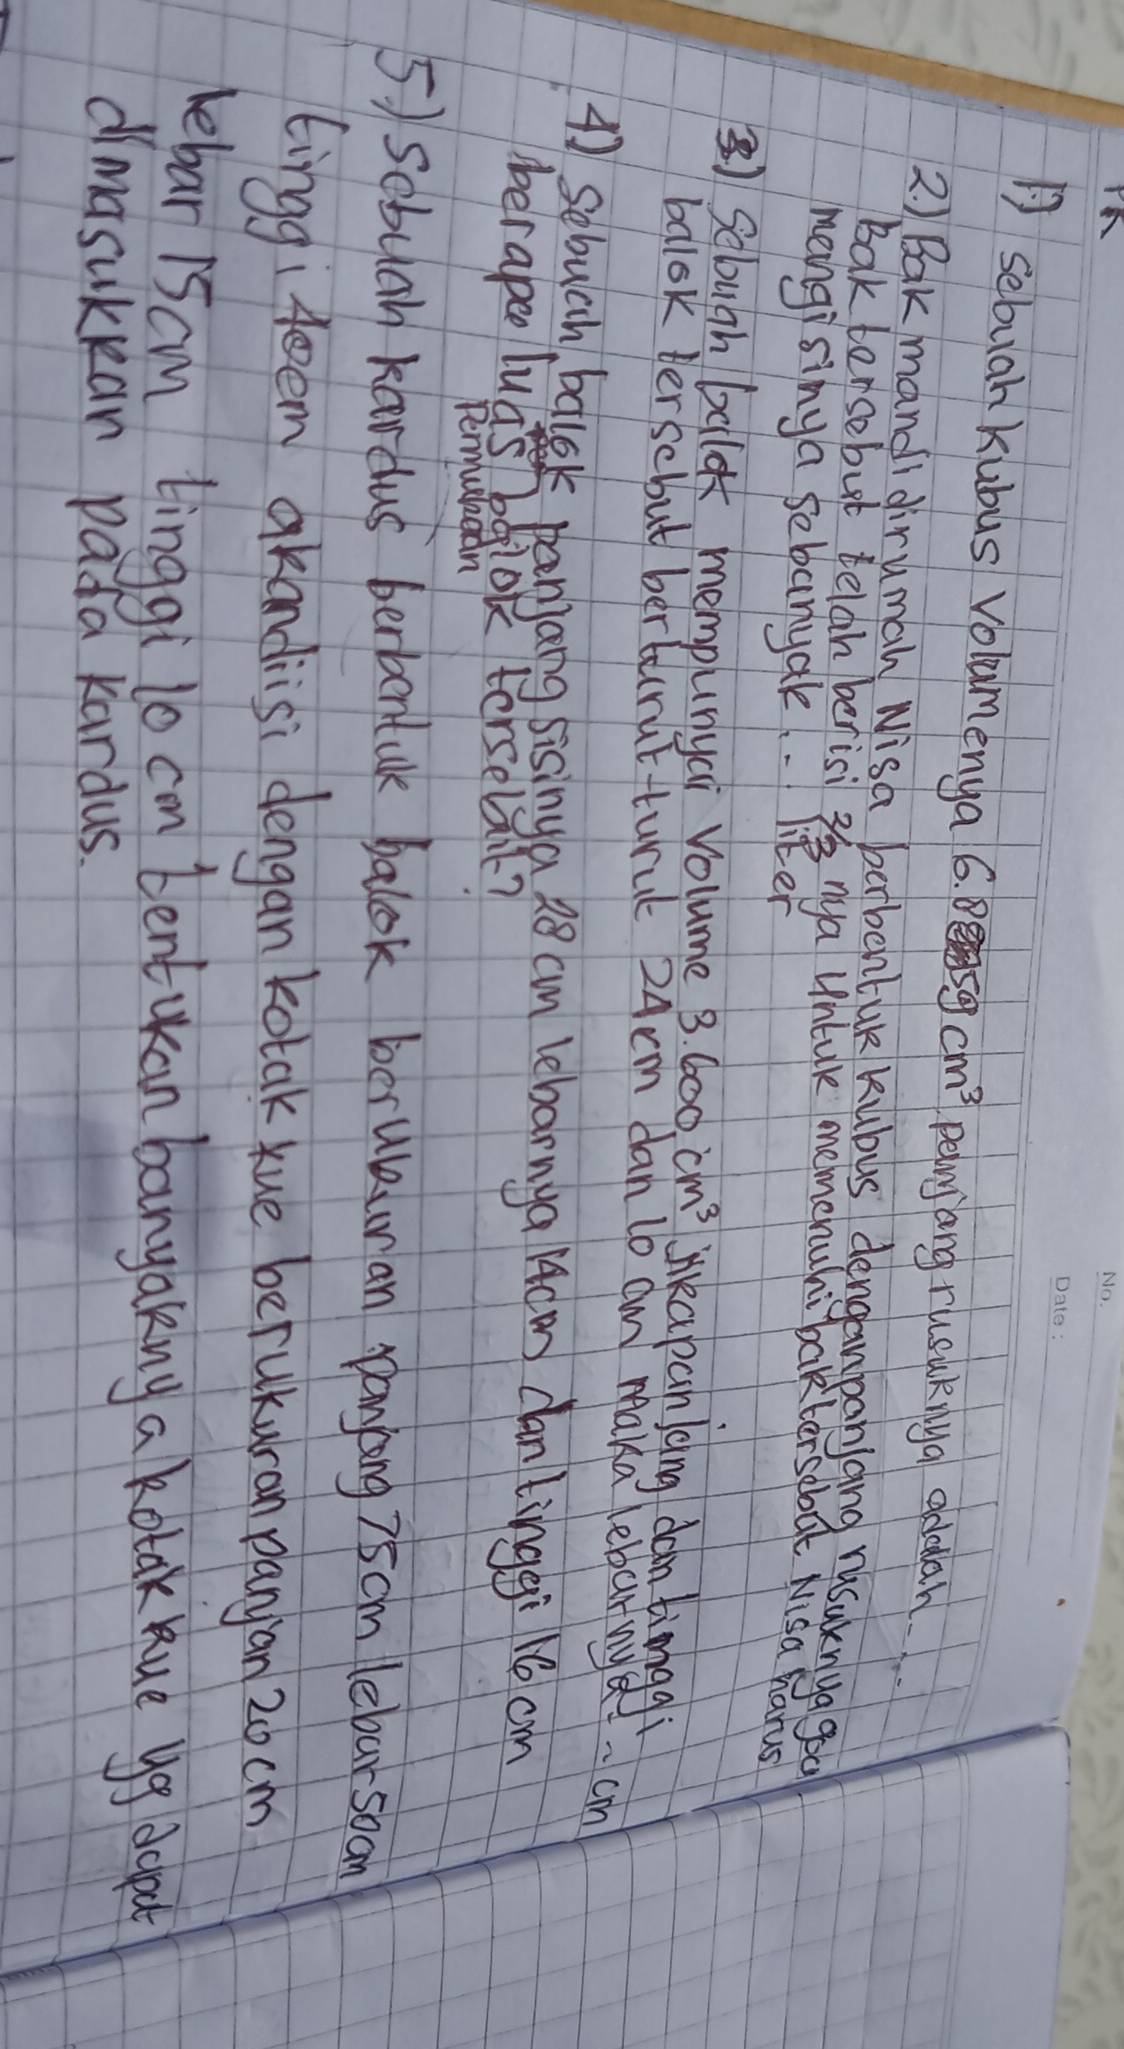 PR
No.
Date :
1.) sebuah kubus Volumenya 6.859 cm³ panjang rusuknya adalah....
2.) Bak mandi dirumah Nisa berbentuk kubus dengan panjang rusuknya
Bak tersebut telah berisi 2/3 nya Untuk memenuhi bak tersebut Nisa harus
mengisinya sebanyak ... liter
3.) Sebuah balok mempunyai Volume 3.600 cm³ jika panjang dan tinggi
balok tersebut berturut-turut 24 cm dan 10 cm maka lebarnya... cm
4.) Sebuah balok panjang sisinya 28 cm lebarnya 14cm dan tinggi 16 cm
berapa luas balok tersebut?
Permukaan
5.) Sebuah kardus berbentuk balok berukuran panjang 75cm lebar 50cm
tinggi 40cm akan diisi dengan kotak kue berukuran panjan 20 cm
lebar 15cm tinggi 10 cm tentukan banyaknya kotak kue yg dapat
dimasukkan pada kardus.